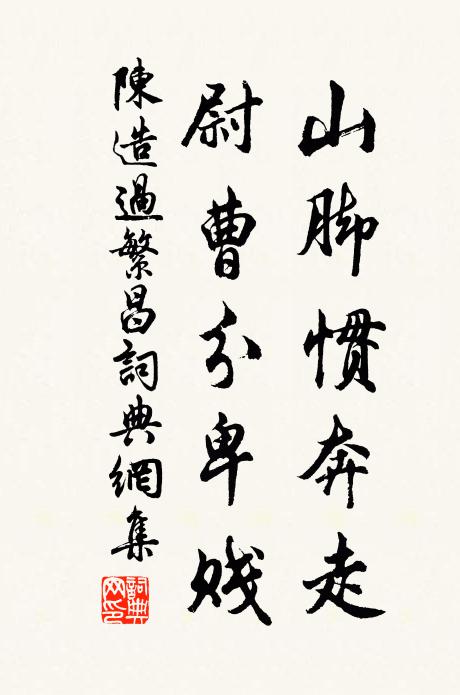 山脚慣奔走
尉曹分卑賤
陳造過繁昌詞典網集
詞典網印